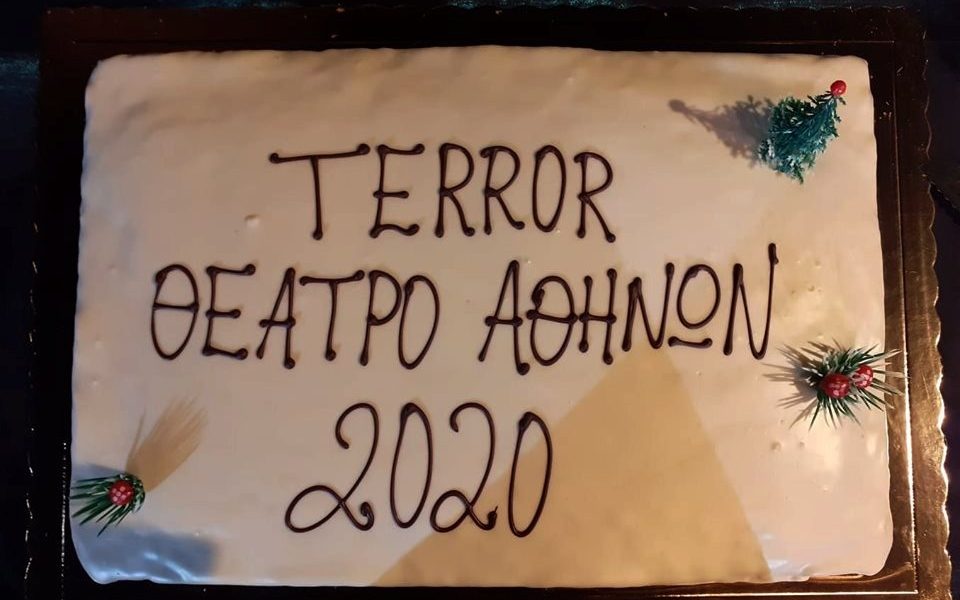 TERROR
ΘΕΑΤΡΟ ΑΘΗΝΩΝ
2020